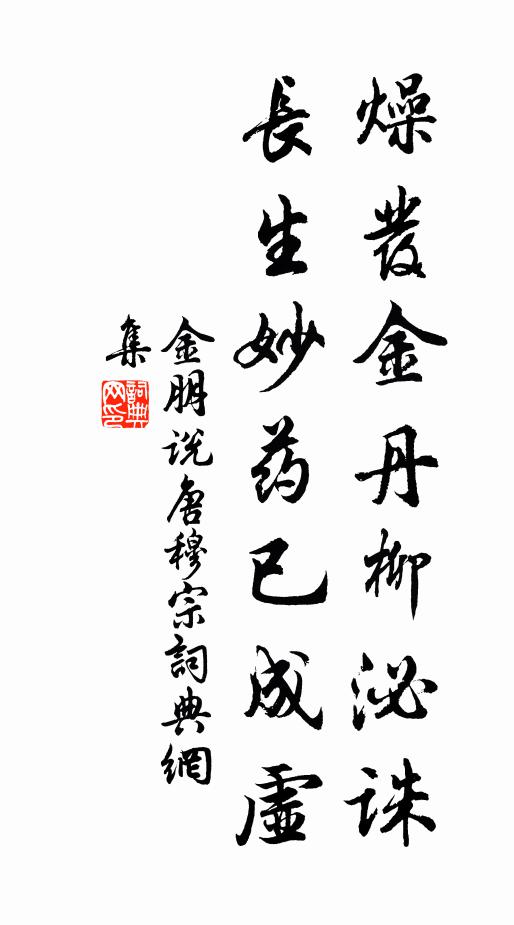 燥發金丹柳泌誅
長生妙药已成虛
金朋说唐穆宗詞典網
集
詞典
网印